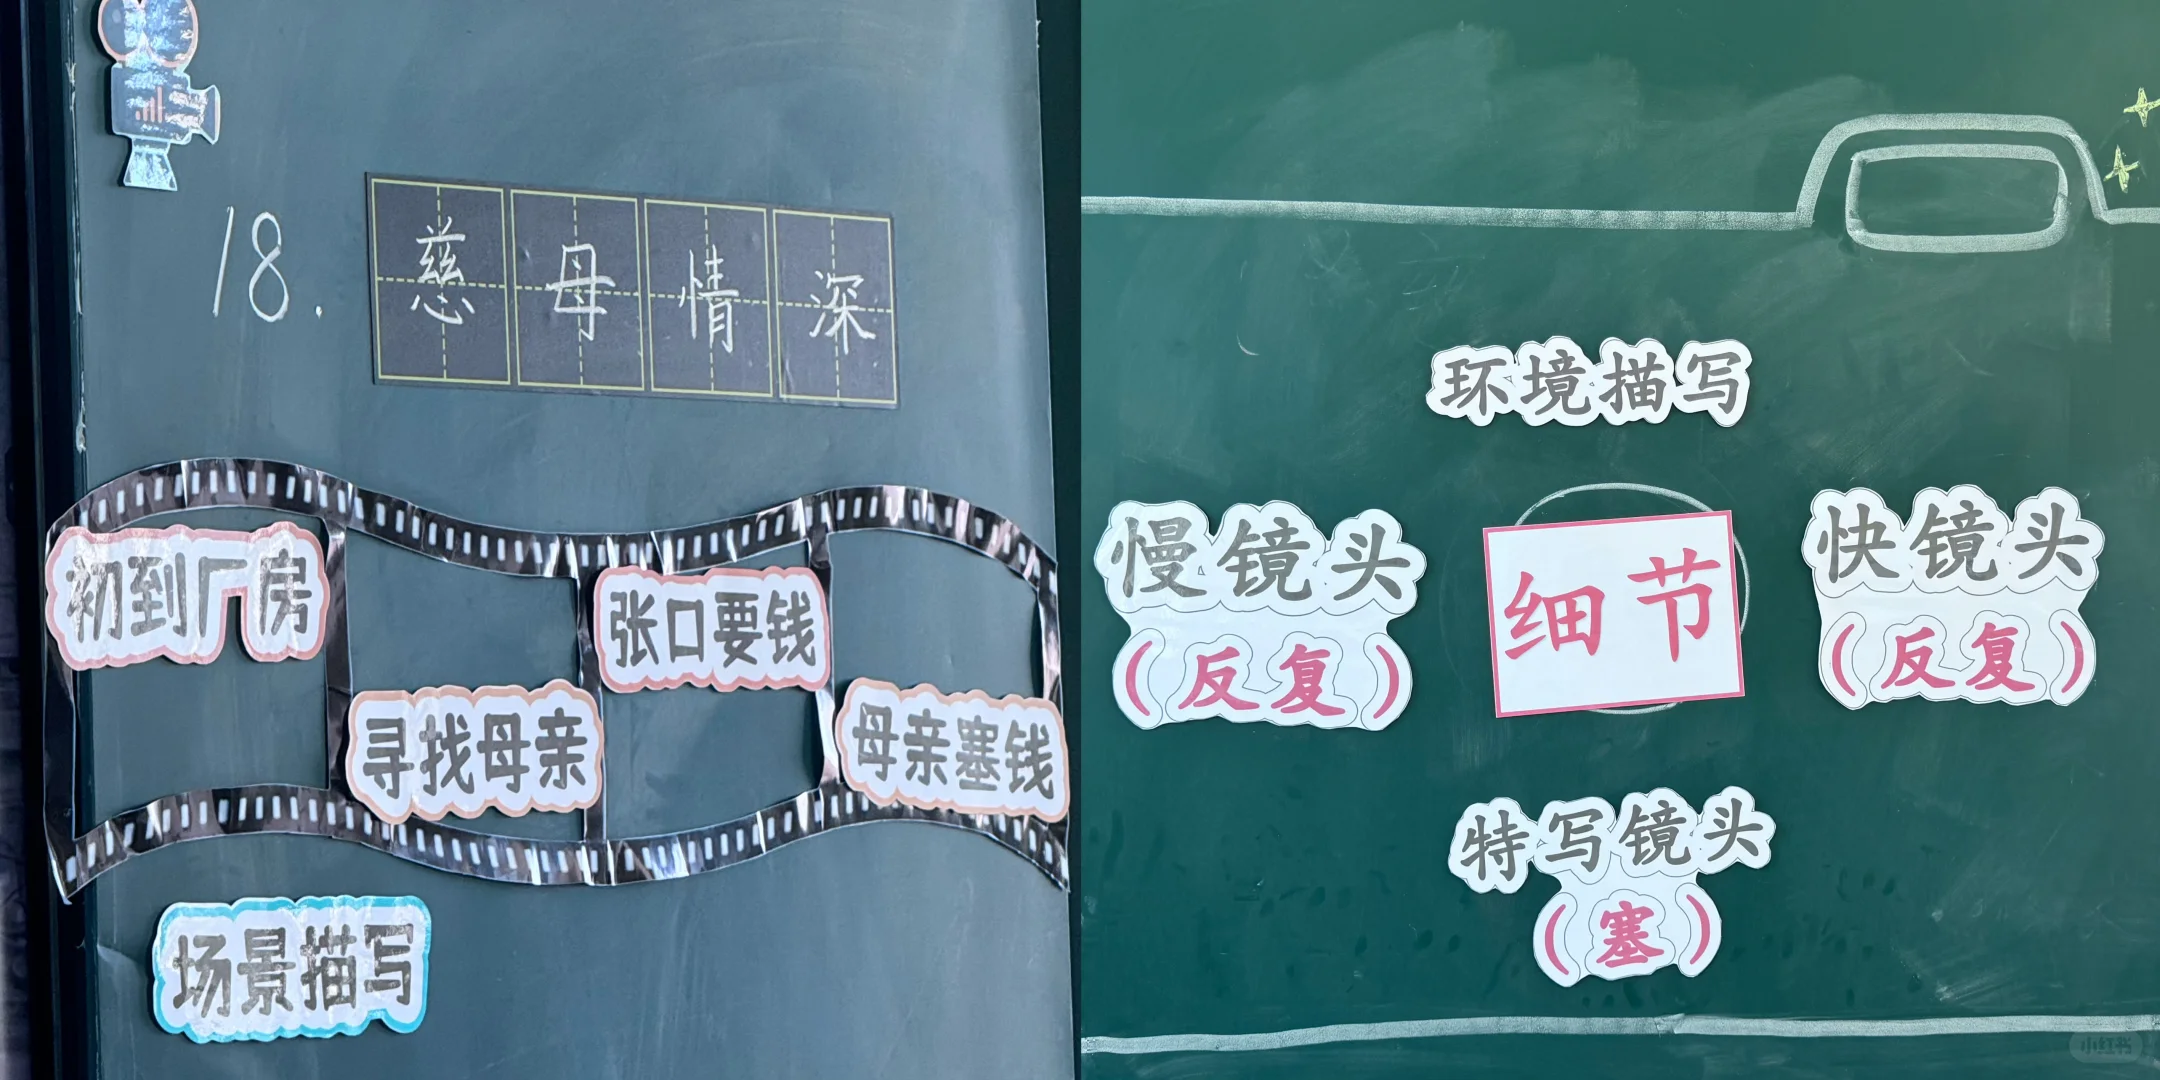 18. 慈母情深
初到厂房
寻找母亲
张口要钱
母亲塞钱
场景描写
环境描写
慢镜头
（反复）
细节
快镜头
（反复）
特写镜头
（塞）
小红书